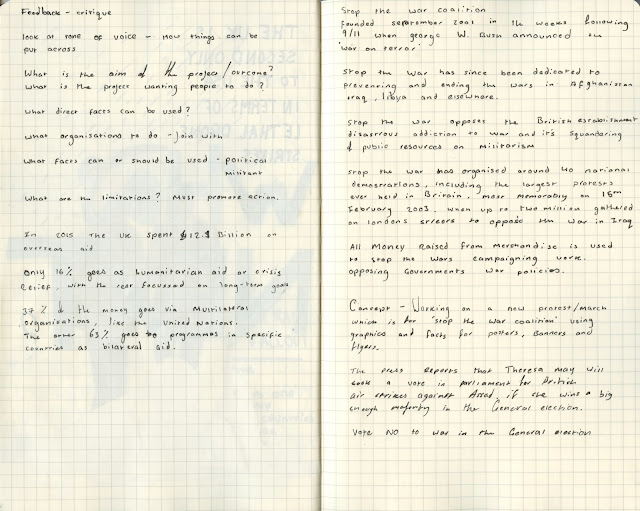 Feedback - critique
look at tone of voice - How things can be
put across
What is the aim of the project/outcome?
What is the project wanting people to do?
What direct facts can be used?
What organisations to do - Join with
What facts can or should be used - political
militant
What are the limitations? Must promote action.
In 2015 The UK spent $12.1 Billion on
overseas aid
Only 16% goes as humanitarian aid or crisis
relief, with the rest focussed on long-term goals
37% of the money goes via Multilateral
organisations, like the United Nations.
The other 63% goes to programmes in specific
countries as bilateral aid.
Stop the war coalition
founded september 2001 in the weeks following
9/11 when george W. Bush announced the
'war on terror'
Stop the war has since been dedicated to
preventing and ending the wars in Afghanistan
Iraq, Libya and elsewhere.
Stop the war opposes the British establishment
disastrous addiction to war and it's squandering
of public resources on Militarism
Stop the war has organised around 40 national
demostrations, including the largest protests
ever held in Britain, most memorably on 15th
February 2003, when up to two million gathered
on londons streets to oppose the war in Iraq
All Money Raised from Merchandise is used
to stop the wars campaigning work.
opposing Governments war policies.
Concept - Working on a new protest/march
which is for 'stop the war coalition' using
graphics and facts for posters, banners and
flyers.
The press reports that Theresa may will
seek a vote in parliament for British
air strikes against Assad, if she wins a big
enough majority in the General election.
Vote NO to war in the General election